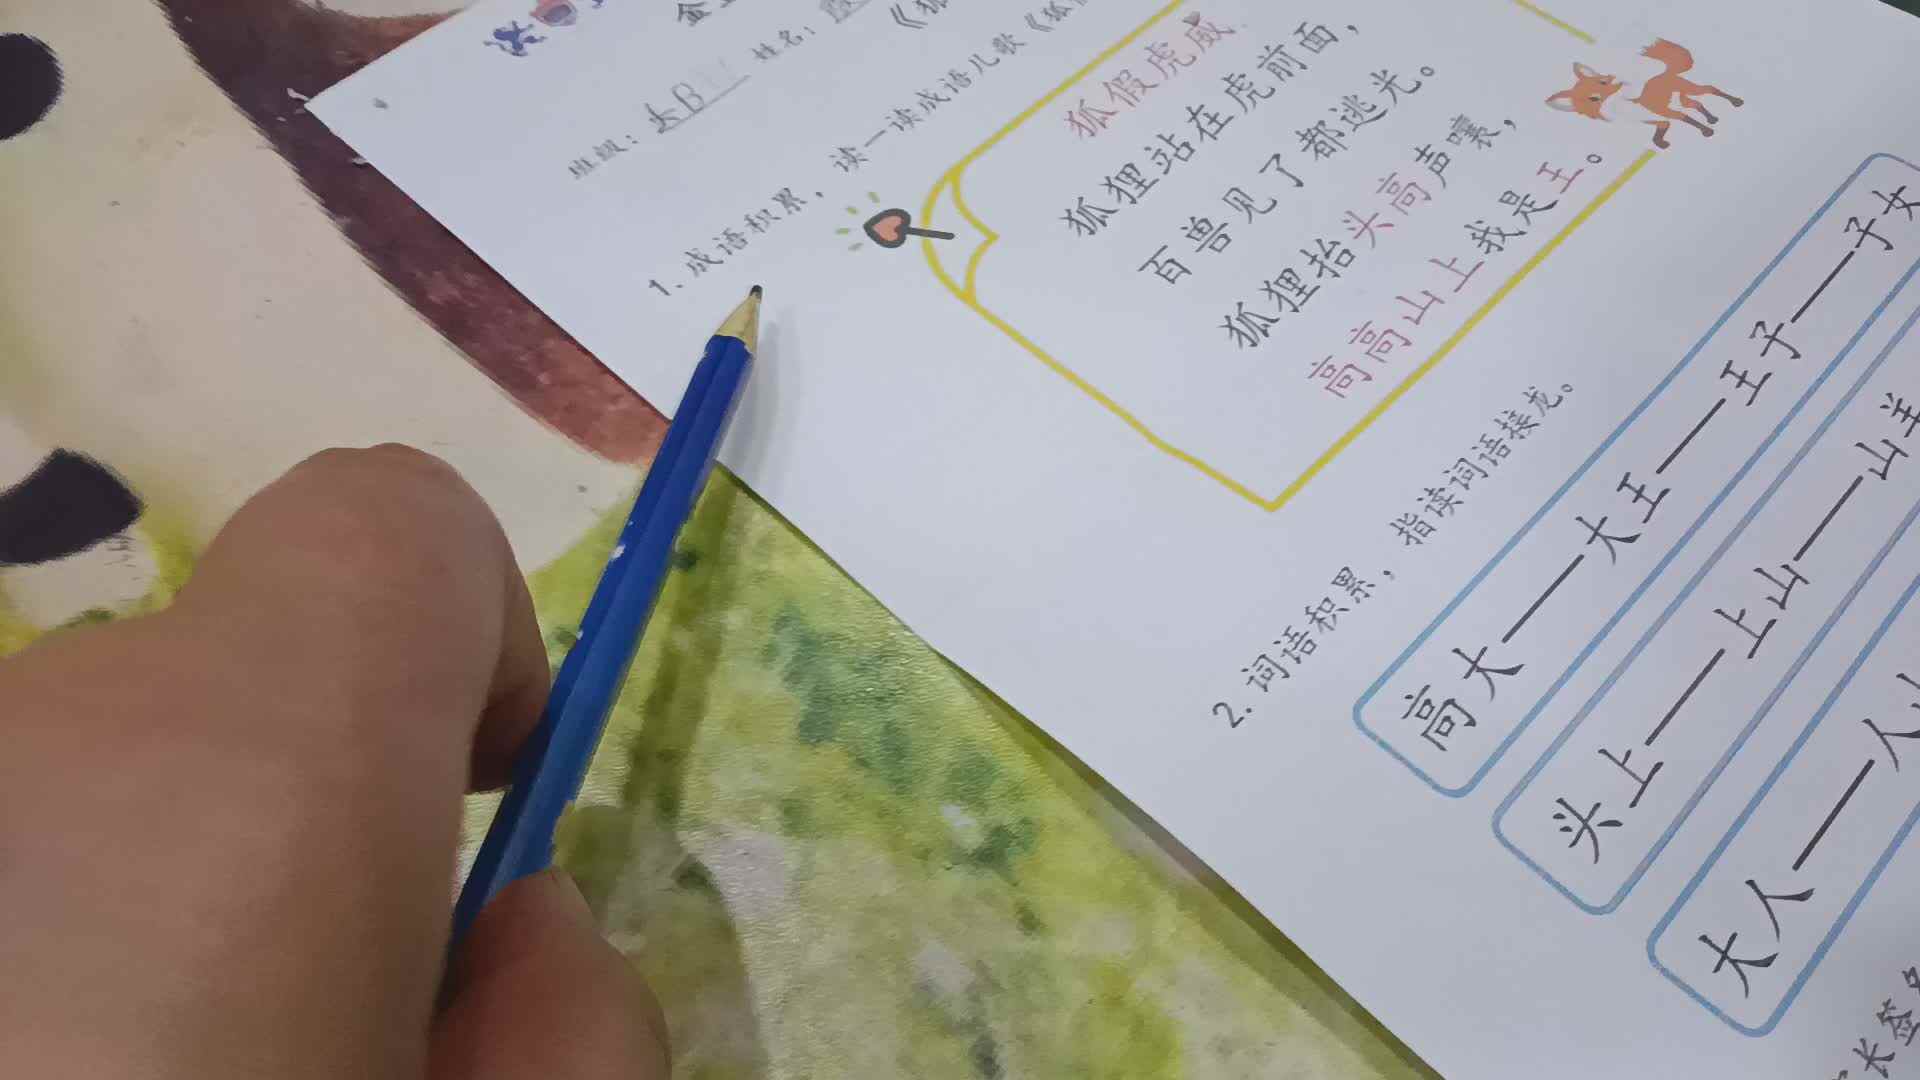 班级：大B 姓名：
1. 成语积累，读一读成语儿歌《狐假
狐假虎威
狐狸站在虎前面，
百兽见了都逃光。
狐狸抬头高声嚷，
高高山上我是王。
2. 词语积累，指读词语接龙。
高大——大王——王子——子女
头上——上山——山羊
大人——人山
长签名